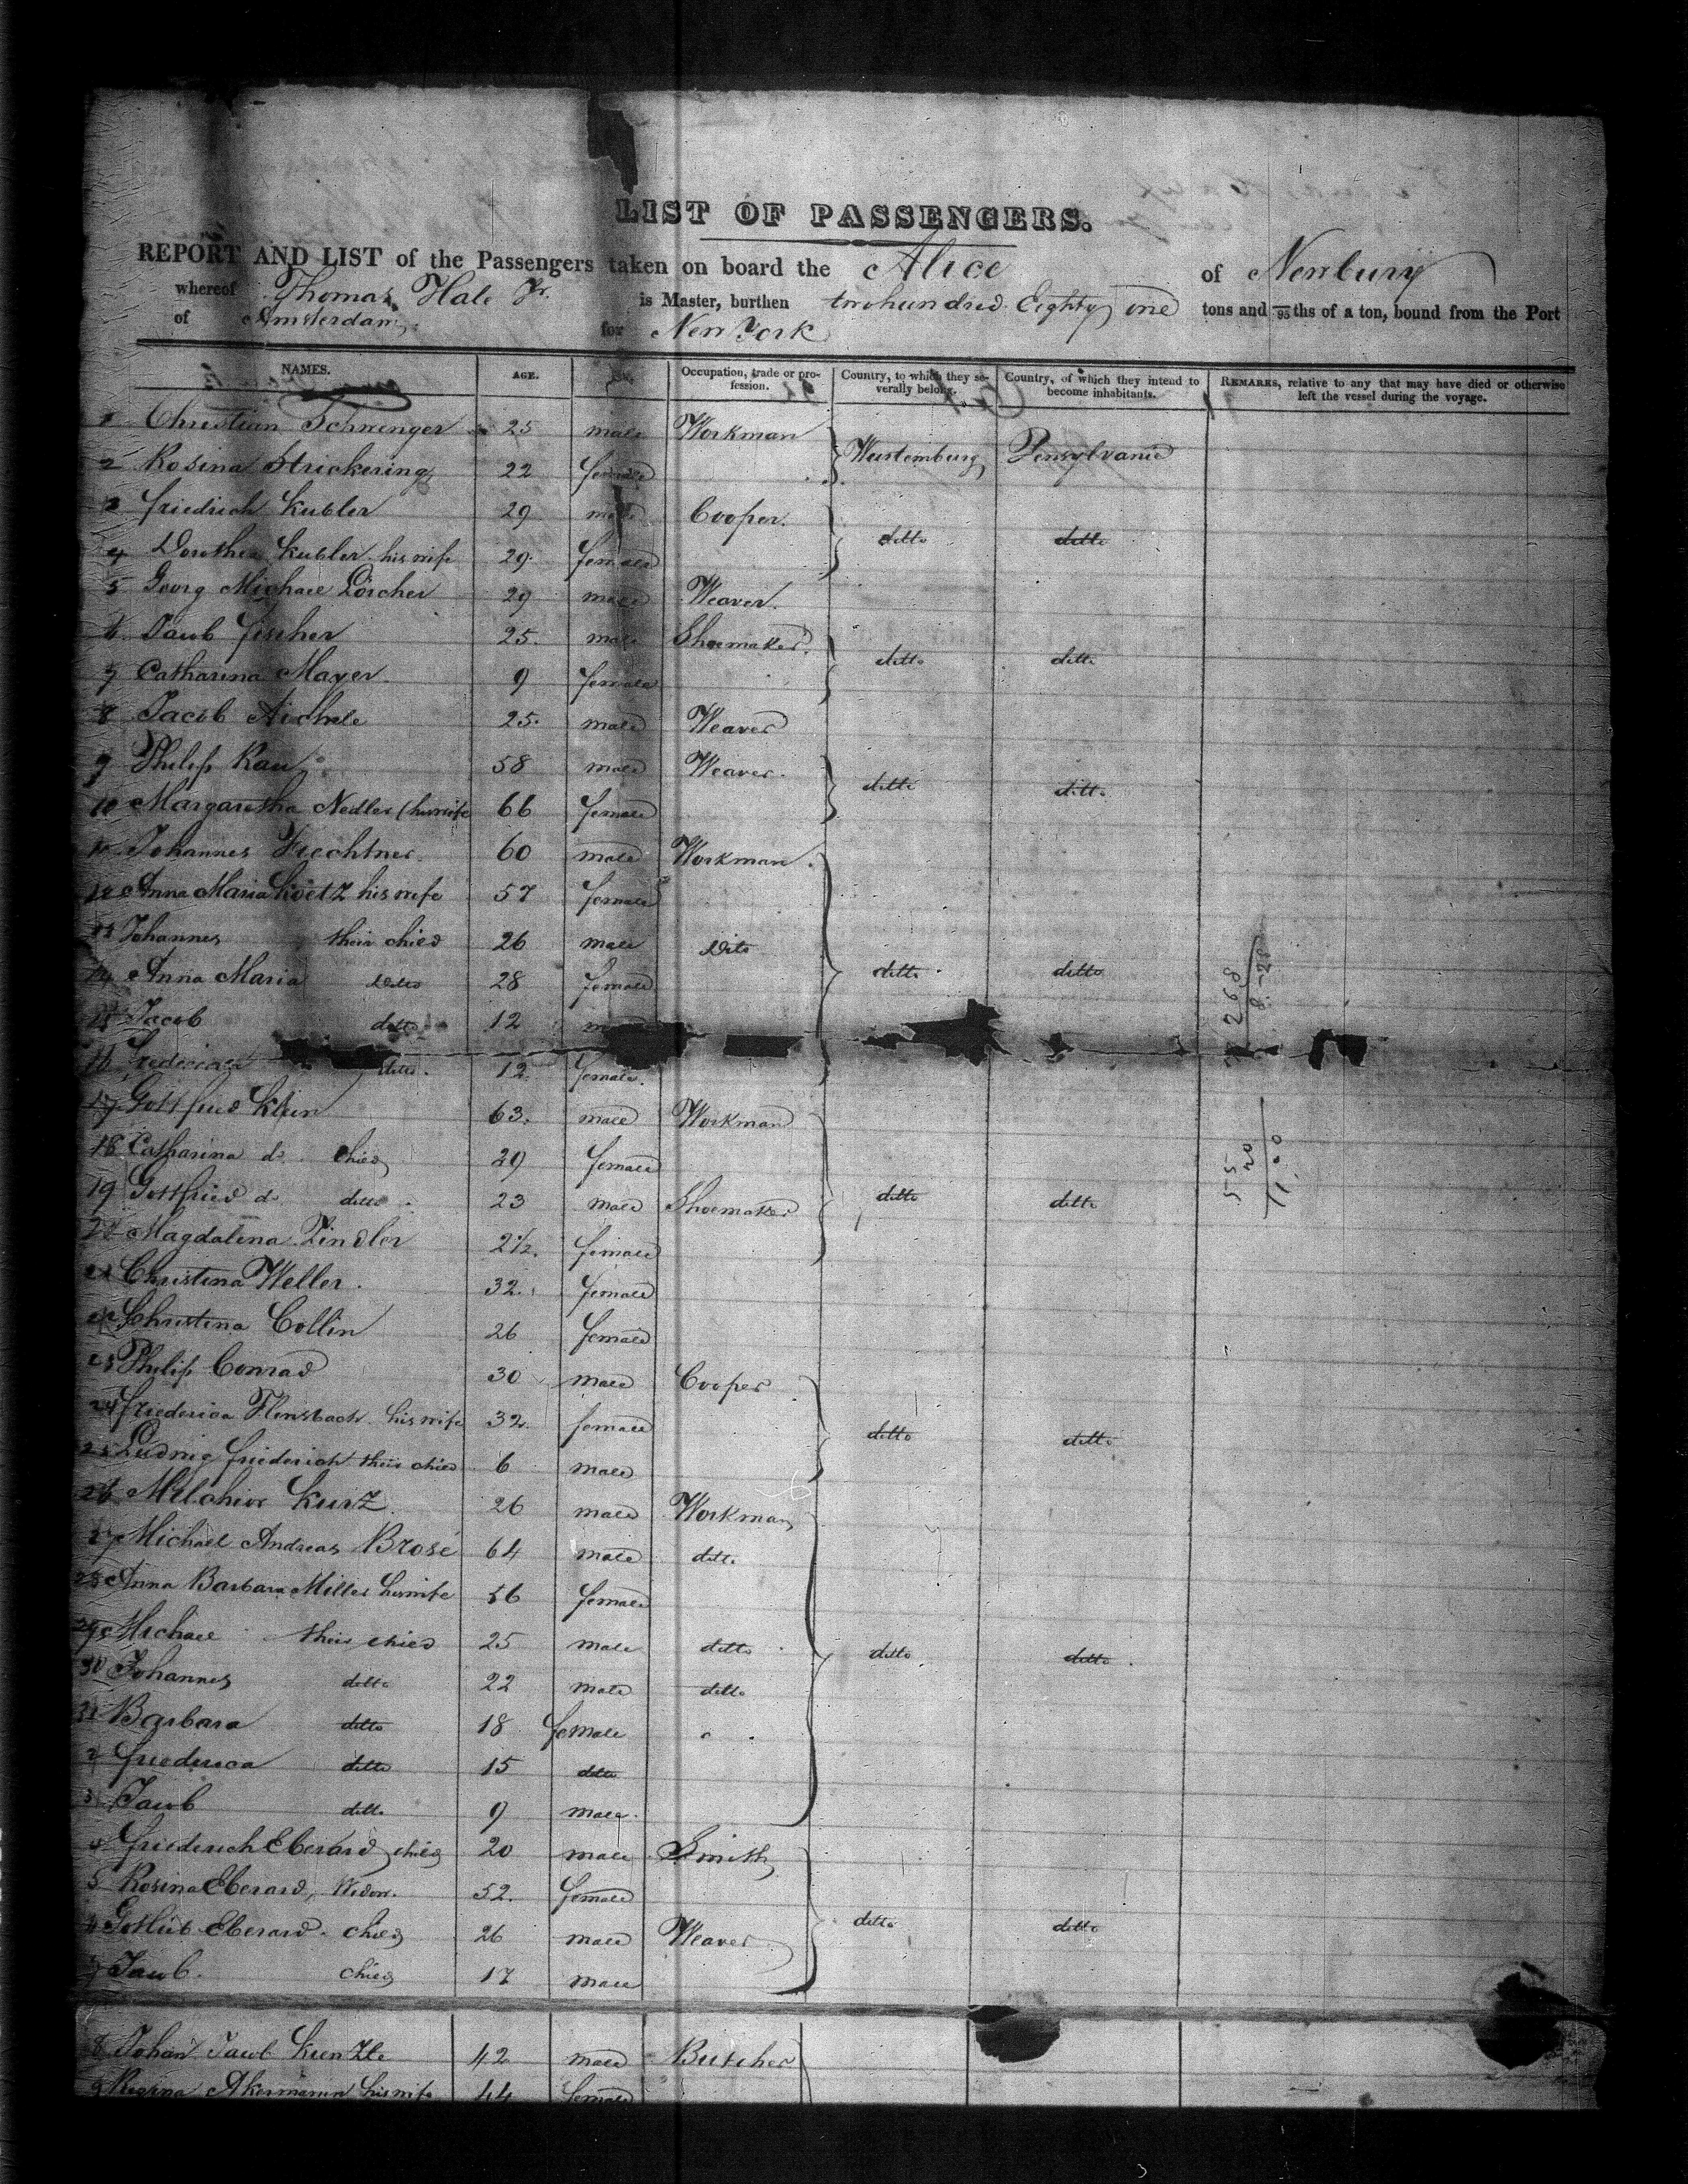 LIST OF PASSENGERS.
REPORT AND LIST of the Passengers taken on board the Alice of Newbury
whereof Thomas Hale Jr. is Master, burthen two hundred Eighty one tons and /95ths of a ton, bound from the Port
of Amsterdam for New York
NAMES. AGE. Occupation, trade or profession. Country, to which they severally belong. Country, of which they intend to become inhabitants. REMARKS, relative to any that may have died or otherwise left the vessel during the voyage.
1 Christian Schwenger 25 male Workman
Wurtemburg Pensylvania
2 Rosina Strickering 22 female
3 friedrich Kubler 29 male Cooper.
ditto ditto
4 Dorothea Kubler his wife 29 female
5 Georg Michael Lörcher 29 male Weaver.
6 Jacob fischer 25 male Shoemaker.
ditto ditto
7 Catharina Mayer 9 female
8 Jacob Aichele 25 male Weaver
9 Philip Rau 58 male Weaver.
ditto ditto
10 Margaretha Nedler (his wife 66 female
11 Johannes Fiechtner 60 male Workman.
12 Anna Maria Koetz his wife 57 female
13 Johannes their child 26 male Dito
14 Anna Maria ditto 28 female ditto ditto
15 Jacob ditto 12
16 Frederica ditto 12 female.
17 Gottfried Klein 63 male Workman
18 Catharina do child 29 female
19 Gottfried do ditto 23 male Shoemaker ditto ditto
20 Magdalena Zindler 2½ female
21 Christina Weller 32 female
22 Christina Collin 26 female
23 Philip Conrad 30 male Cooper
24 friederica Flensbach his wife 32 female ditto ditto
25 Ludwig friederich their child 6 male
26 Melchior Kurz 26 male Workman
27 Michael Andreas Brosé 64 male ditto
28 Anna Barbara Miller his wife 56 female
29 Michael their child 25 male ditto ditto ditto
30 Johannes ditto 22 male ditto
31 Barbara ditto 18 female
2 friederica ditto 15 ditto
3 Jacob ditto 9 male
4 friederich Eberard child 20 male Smith
5 Rosina Eberard, Widow. 52 female
6 Gottlieb Eberard child 26 male Weaver ditto ditto
7 Jacob child 17 male
8 Johan Jacob Kuenzle 42 male Butcher
9 Regina Akermann his wife 44 female
268
55
20
11.00